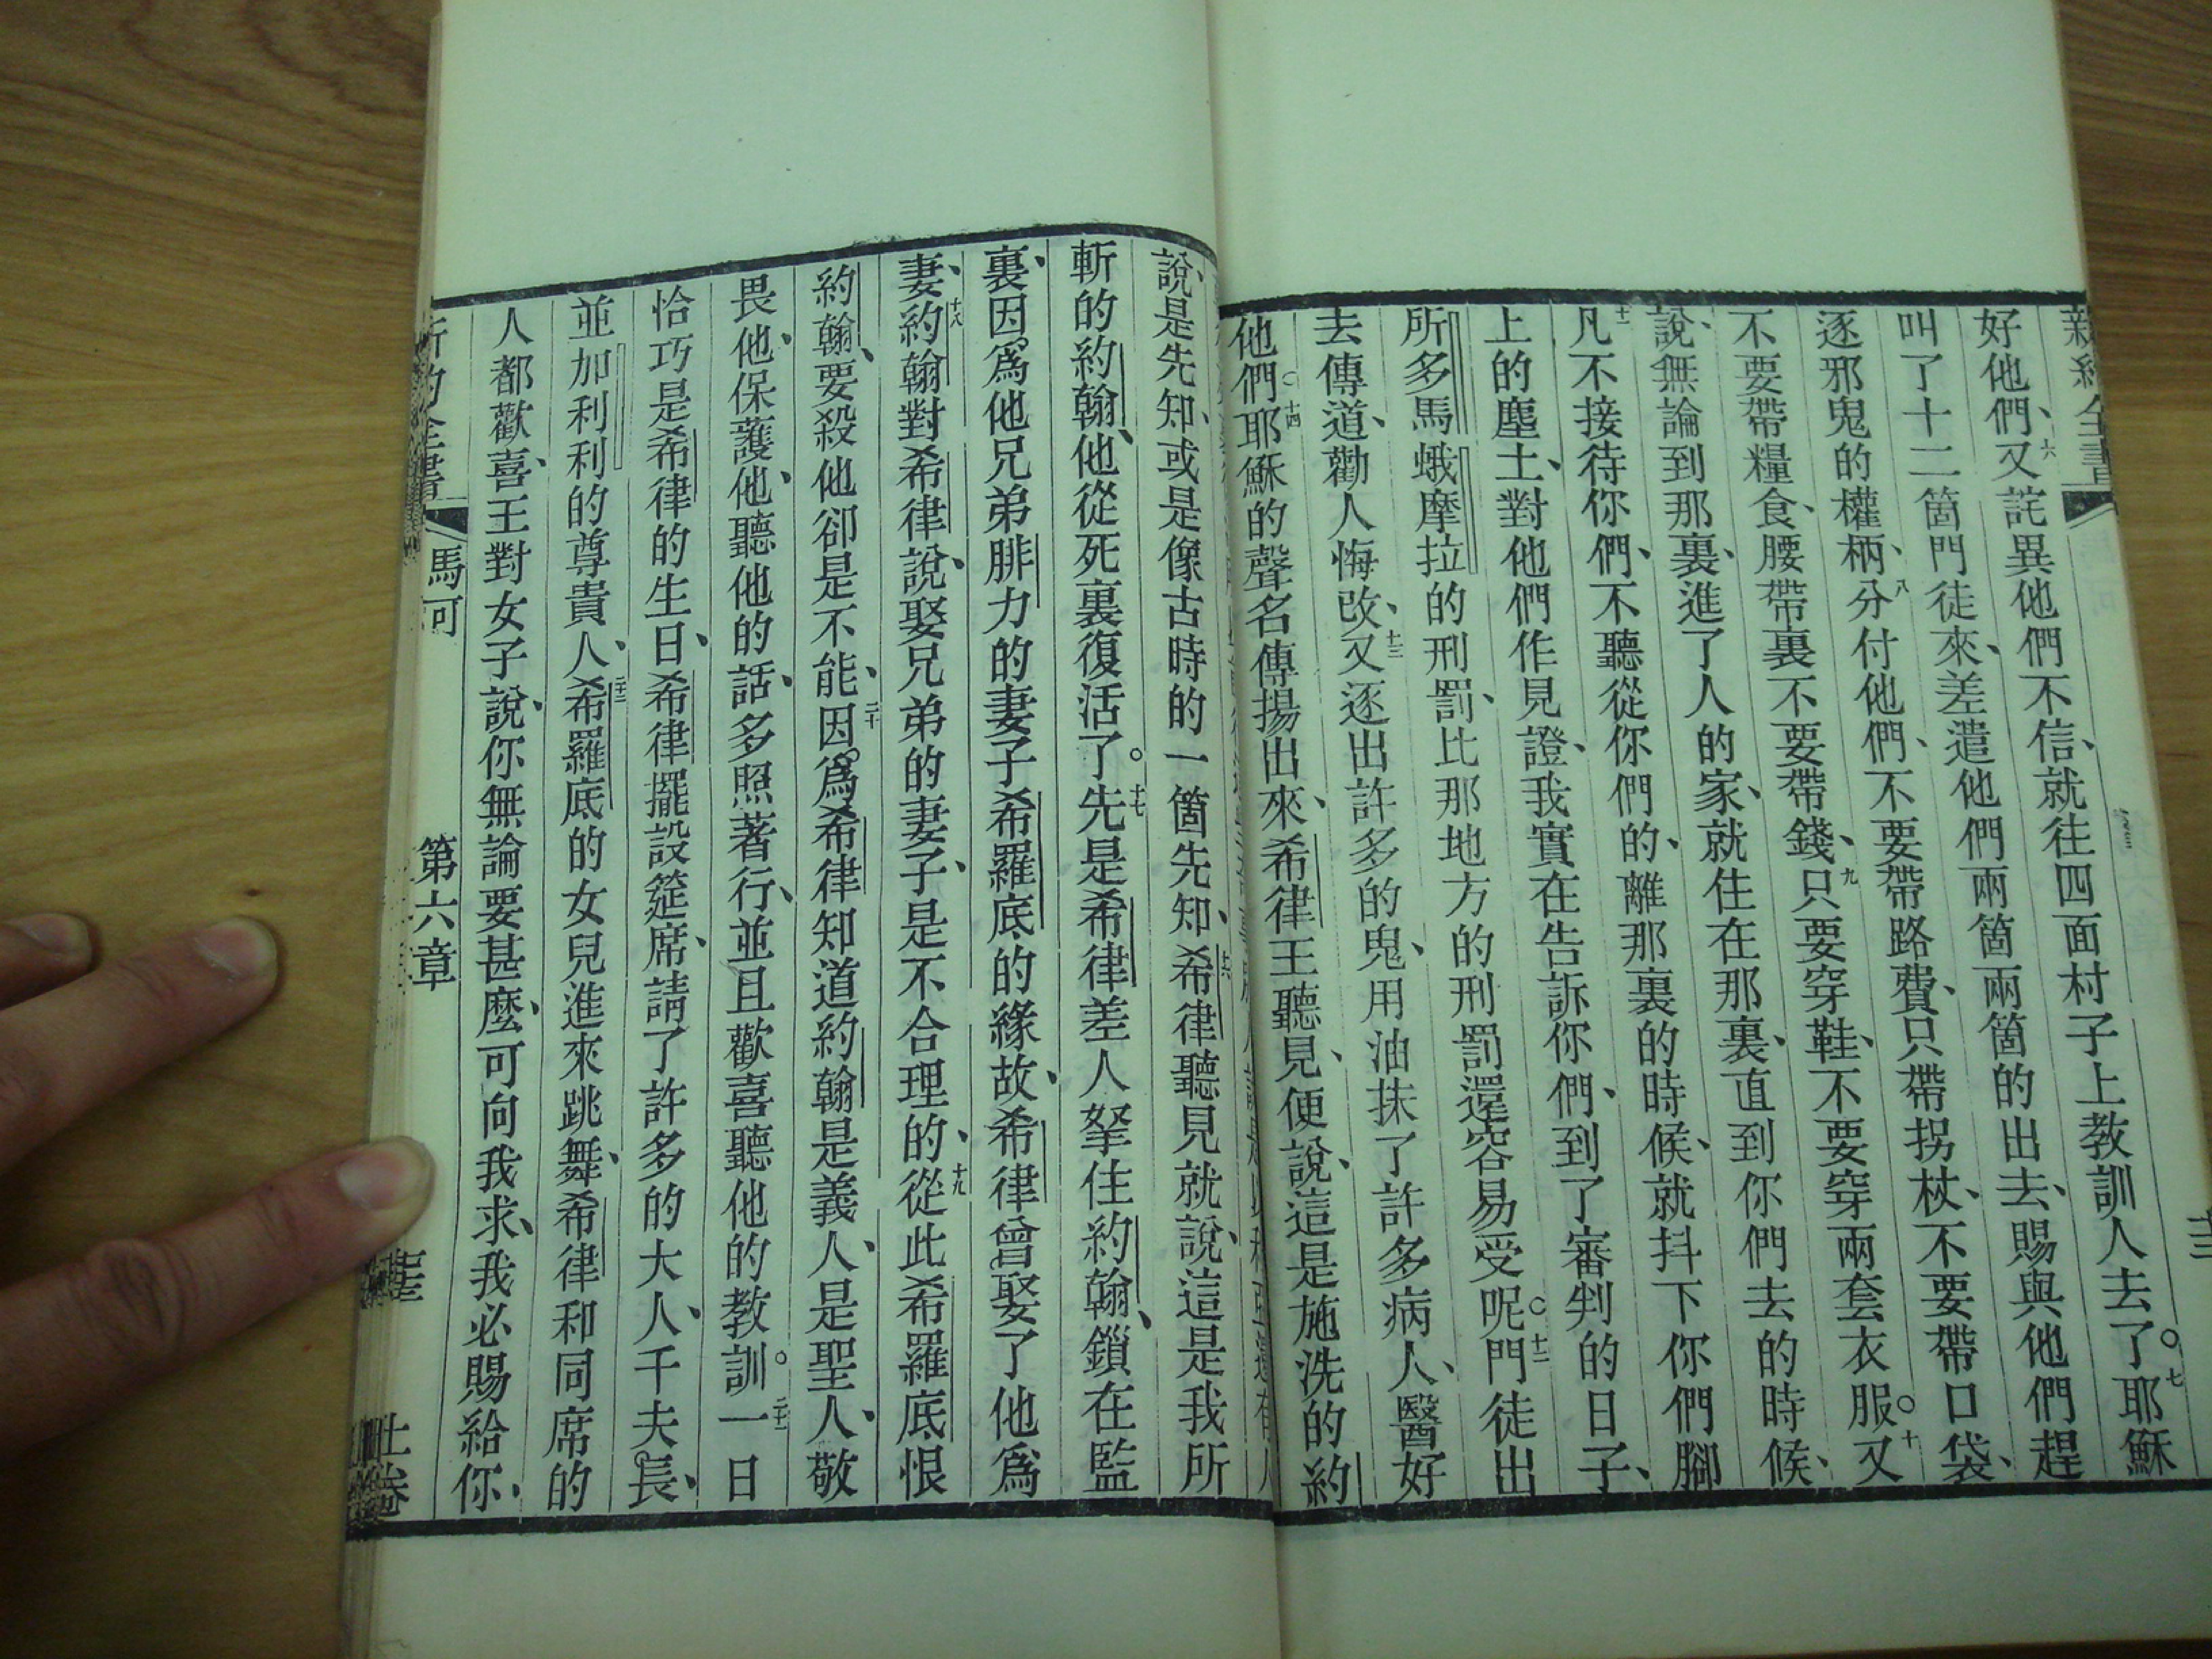 新約全書
好他們、六又詫異他們不信、就往四面村子上教訓人去了。七耶穌
叫了十二箇門徒來、差遣他們兩箇兩箇的出去、賜與他們趕
逐邪鬼的權柄、八分付他們、不要帶路費、只帶拐杖、不要帶口袋、
不要帶糧食、腰帶裏不要帶錢、九只要穿鞋、不要穿兩套衣服。十又
說、無論到那裏、進了人的家、就住在那裏、直到你們去的時候、
十一凡不接待你們、不聽從你們的、離那裏的時候、就抖下你們腳
上的塵土、對他們作見證、我實在告訴你們、到了審判的日子、
所多馬蛾摩拉的刑罰、比那地方的刑罰還容易受呢。十二門徒出
去傳道、勸人悔改、十三又逐出許多的鬼、用油抹了許多病人、醫好
他們。十四耶穌的聲名傳揚出來、希律王聽見、便說、這是施洗的約
說、是先知、或是像古時的一箇先知、十六希律聽見就說、這是我所
斬的約翰、他從死裏復活了。十七先是希律差人拏住約翰、鎖在監
裏、因爲他兄弟腓力的妻子希羅底的緣故、希律曾娶了他爲
妻、十八約翰對希律說、娶兄弟的妻子、是不合理的、十九從此希羅底恨
約翰、要殺他卻是不能、二十因爲希律知道約翰是義人、是聖人、敬
畏他、保護他、聽他的話、多照著行、並且歡喜聽他的教訓。二十一一日
恰巧是希律的生日、希律擺設筵席、請了許多的大人、千夫長、
並加利利的尊貴人、二十二希羅底的女兒進來跳舞、希律和同席的
人都歡喜、王對女子說、你無論要甚麼、可向我求、我必賜給你、
新約全書 馬可 第六章